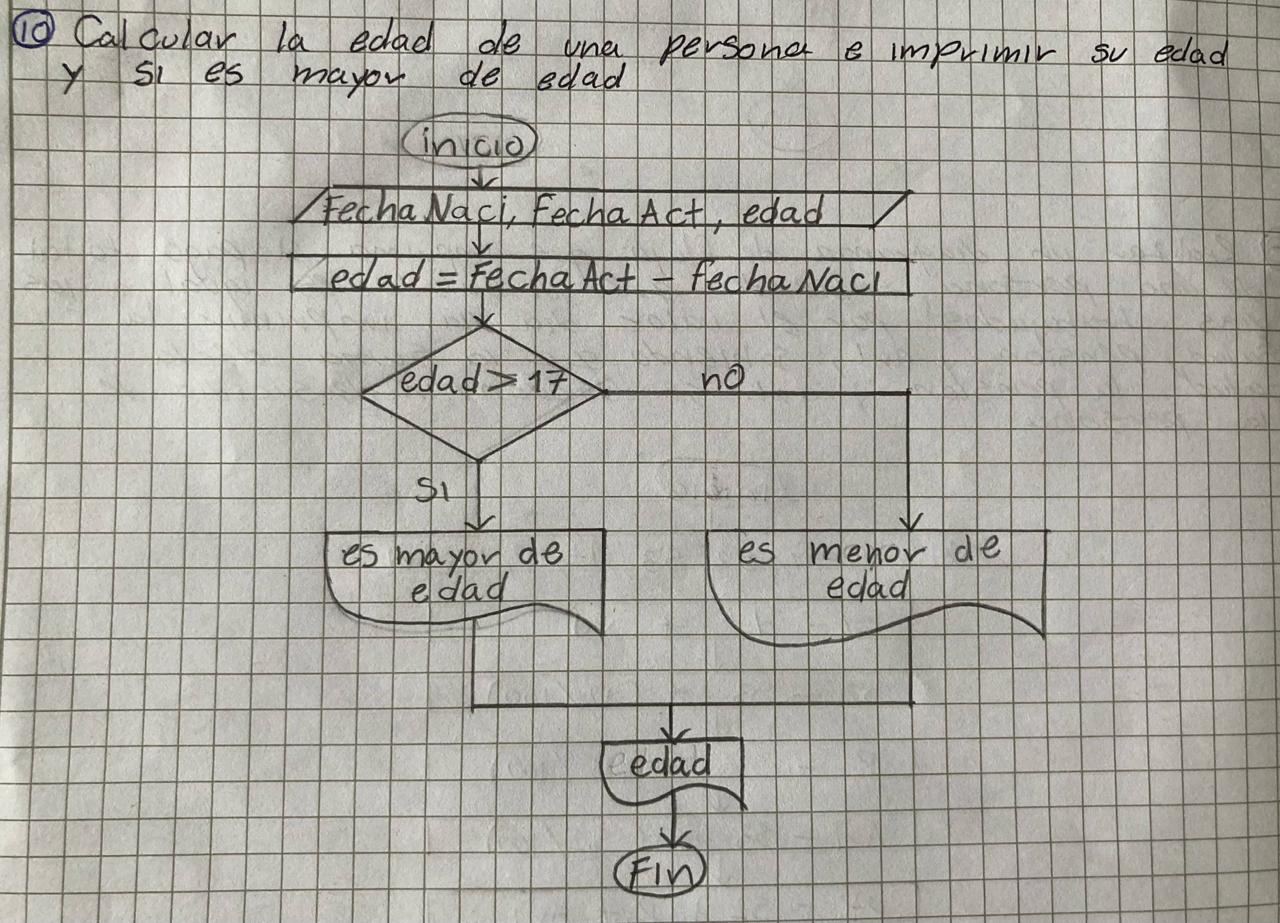 10 Calcular la edad de una persona e imprimir su edad
y si es mayor de edad
inicio
Fecha Naci, Fecha Act, edad
edad = Fecha Act - fecha Naci
edad > 17
no
Si
es mayor de
edad
es menor de
edad
edad
Fin